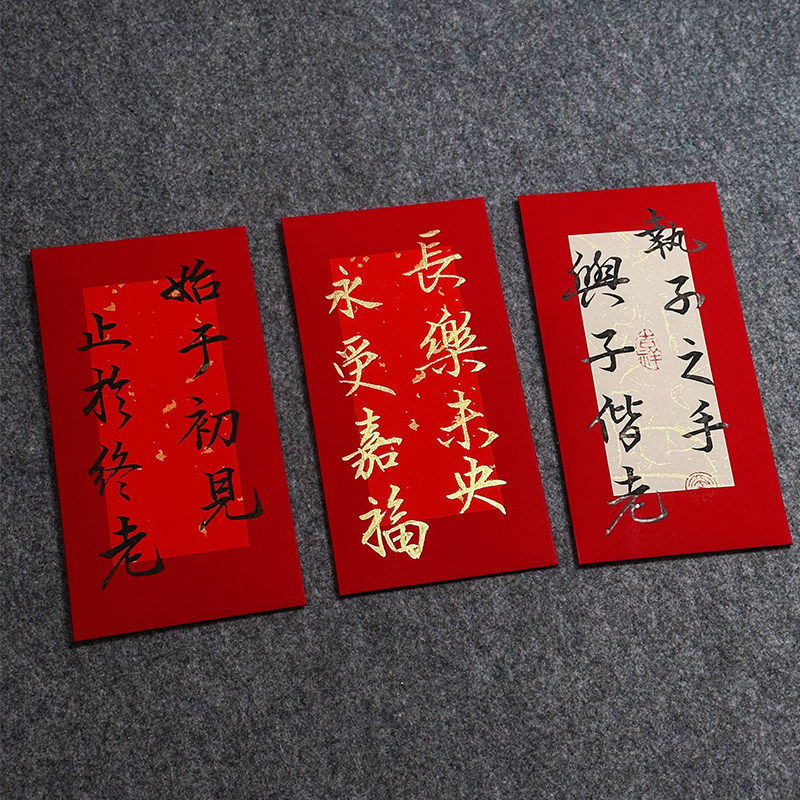 始于初見
止於終老
長樂未央
永受嘉福
執子之手
與子偕老
吉祥